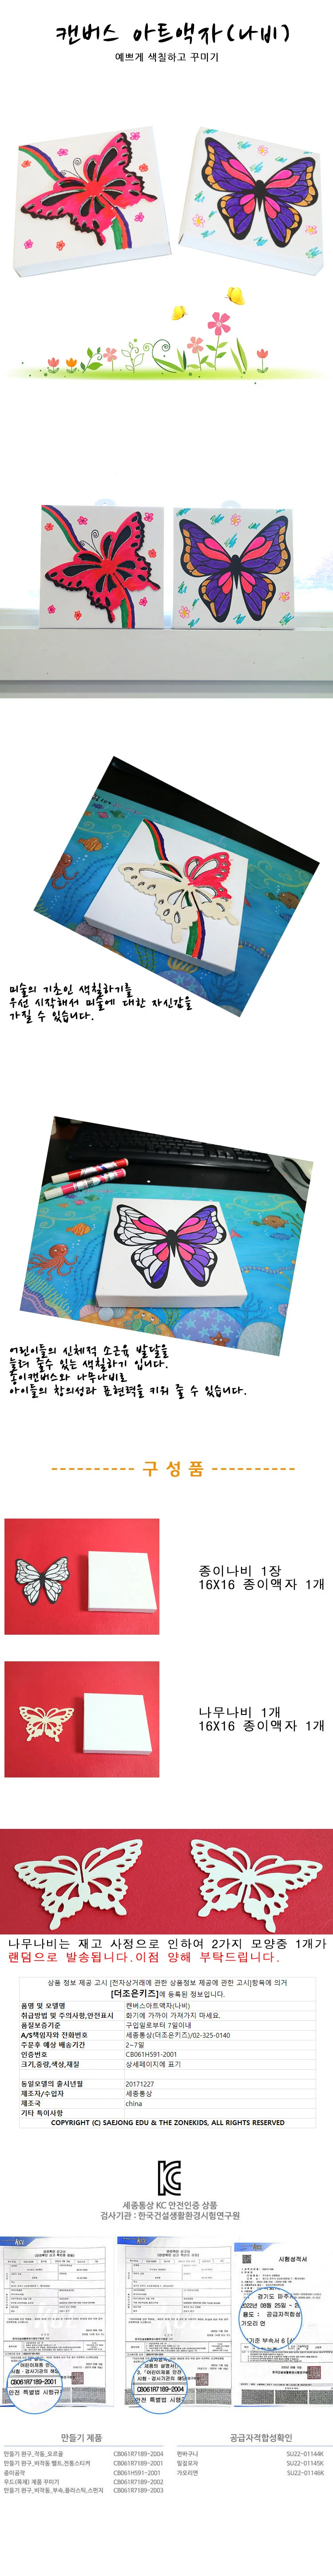 캔버스 아트액자(나비)
예쁘게 색칠하고 꾸미기
미술의 기초인 색칠하기를
우선 시작해서 미술에 대한 자신감을
가질 수 있습니다.
어린이들의 신체적 소근육 발달을
늘려 줄수 있는 색칠하기 입니다.
종이캔버스와 나무나비로
아이들의 창의성과 표현력을 키워 줄 수 있습니다.
---------- 구 성 품 ----------
종이나비 1장
16X16 종이액자 1개
나무나비 1개
16X16 종이액자 1개
나무나비는 재고 사정으로 인하여 2가지 모양중 1개가
랜덤으로 발송됩니다.이점 양해 부탁드립니다.
상품 정보 제공 고시 [전자상거래에 관한 상품정보 제공에 관한 고시]항목에 의거
[더조은키즈]에 등록된 정보입니다.
품명 및 모델명 캔버스아트액자(나비)
취급방법 및 주의사항,안전표시 화기에 가까이 가져가지 마세요.
품질보증기준 구입일로부터 7일이내
A/S책임자와 전화번호 세종통상(더조은키즈)/02-325-0140
주문후 예상 배송기간 2~7일
인증번호 CB061H591-2001
크기,중량,색상,재질 상세페이지에 표기
동일모델의 출시년월 20171227
제조자/수입자 세종통상
제조국 china
기타 특이사항
COPYRIGHT (C) SAEJONG EDU & THE ZONEKIDS, ALL RIGHTS RESERVED
세종통상 KC 안전인증 상품
검사기관 : 한국건설생활환경시험연구원
시험성적서
CB061R7189-2001
CB061R7189-2004
만들기 제품
만들기 완구_작동_오르골 CB061R7189-2004
만들기 완구_비작동 펠트,전통스티커 CB061R7189-2001
종이공작 CB061H591-2001
우드(목재) 제품 꾸미기 CB061R7189-2002
만들기 완구_비작동_부속,플라스틱,스펀지 CB061R7189-2003
공급자적합성확인
짠바구니 SU22-01144K
밀짚모자 SU22-01145K
가오리연 SU22-01146K